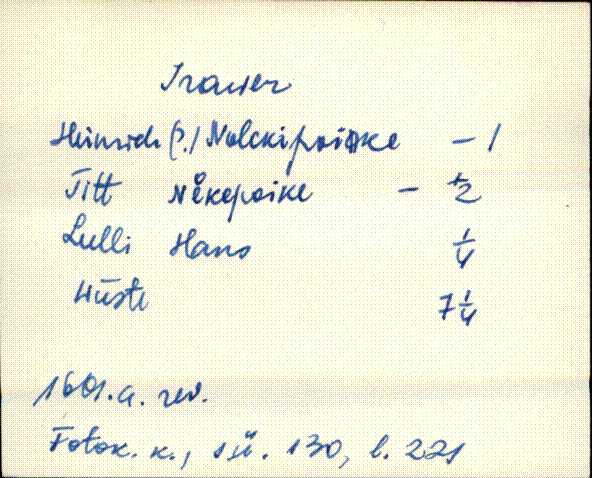 Irawer
Heinrich (?) Nolckipoicke - 1
Titt Nekepoike - 1/2
Lulli Hans 1/4
Wüste 7 1/4
1601. a. rev.
Fotok. k., sü. 130, l. 221